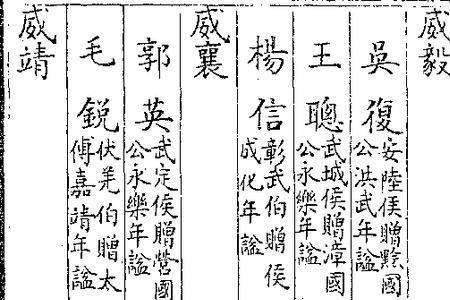 威毅
吳復安陸侯贈黔國
公洪武年諡
王聰武城侯贈漳國
公永樂年諡
楊信彰武伯贈侯
成化年諡
威襄
郭英武定侯贈營國
公永樂年諡
毛銳伏羌伯贈太
傅嘉靖年諡
威靖